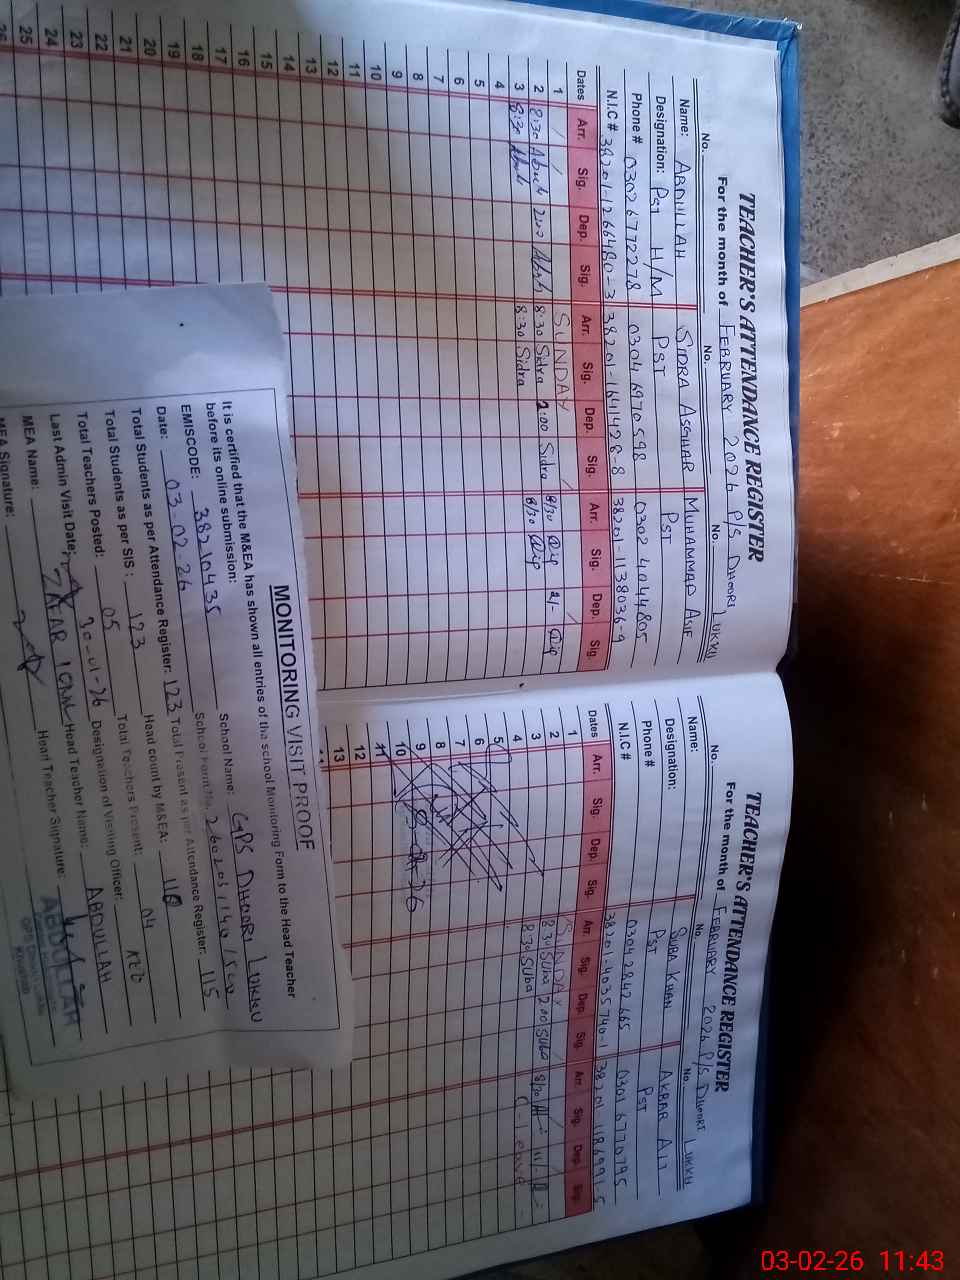 TEACHER'S ATTENDANCE REGISTER
For the month of FEBRUARY 2026 P/S DHOORI LUKKU
No. No. No.
Name: ABDULLAH SIDRA ASGHAR MUHAMMAD ASIF
Designation: PST H/M PST PST
Phone # 0302 6772278 0304 6970598 0302 4044805
N.I.C # 38201-1266480-3 38201-1641428-8 38201-1138036-9
Dates Arr. Sig. Dep. Sig. Arr. Sig. Dep. Sig. Arr. Sig. Dep. Sig.
1 SUNDAY
2 8:30 2:00 8:30 Sidra 2:00 Sidra 8/30 2/-
3 8:30 8:30 Sidra 8/30
4
5
6
7
8
9
10
11
12
13
14
15
16
17
18
19
20
21
22
23
24
25
26
TEACHER'S ATTENDANCE REGISTER
For the month of FEBRUARY 2026 P/S DHOORI LUKKU
No. No. No.
Name: SUBA KHAN AKBAR ALI
Designation: PST PST
Phone # 0304 2842665 0301 6770795
N.I.C # 38201-4035740-1 38201-1186991-5
Dates Arr. Sig. Dep. Sig. Arr. Sig. Dep. Sig. Arr. Sig. Dep. Sig.
1 SUNDAY
2 8:30 Suba 2:00 Suba 8/30
3 8:30 Suba C-Leave
4
5
6
7
8
9
10
11
12
13
MONITORING VISIT PROOF
It is certified that the M&EA has shown all entries of the school Monitoring Form to the Head Teacher
before its online submission:
EMISCODE: 38210435 School Name: GPS DHOORI LUKKU
Date: 03-02-26 School Form No.
Total Students as per Attendance Register: 123 Total Present as per Attendance Register: 115
Total Students as per SIS: 123 Head count by M&EA:
Total Teachers Posted: 05 Total Teachers Present: 04
Last Admin Visit Date: 30-01-26 Designation of Visiting Officer: AEO
MEA Name: ZAFAR IQBAL Head Teacher Name: ABDULLAH
MEA Signature: Head Teacher Signature:
ABDULLAH
03-02-26 11:43